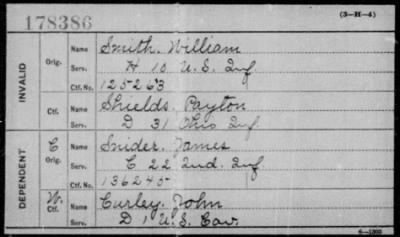 178386
(3-H-4)
INVALID
Orig.
Name Smith. William
Serv. H 10 U.S. Inf
Ctf. No. 125263
Ctf.
Name Shields. Payton
Serv. D 31 Ohio Inf.
DEPENDENT
C
Orig.
Name Snider. James
Serv. C 22 Ind. Inf
Ctf. No. 136245
W.
Ctf.
Name Curley. John
Serv. D 1 U.S. Cav.
6-1303